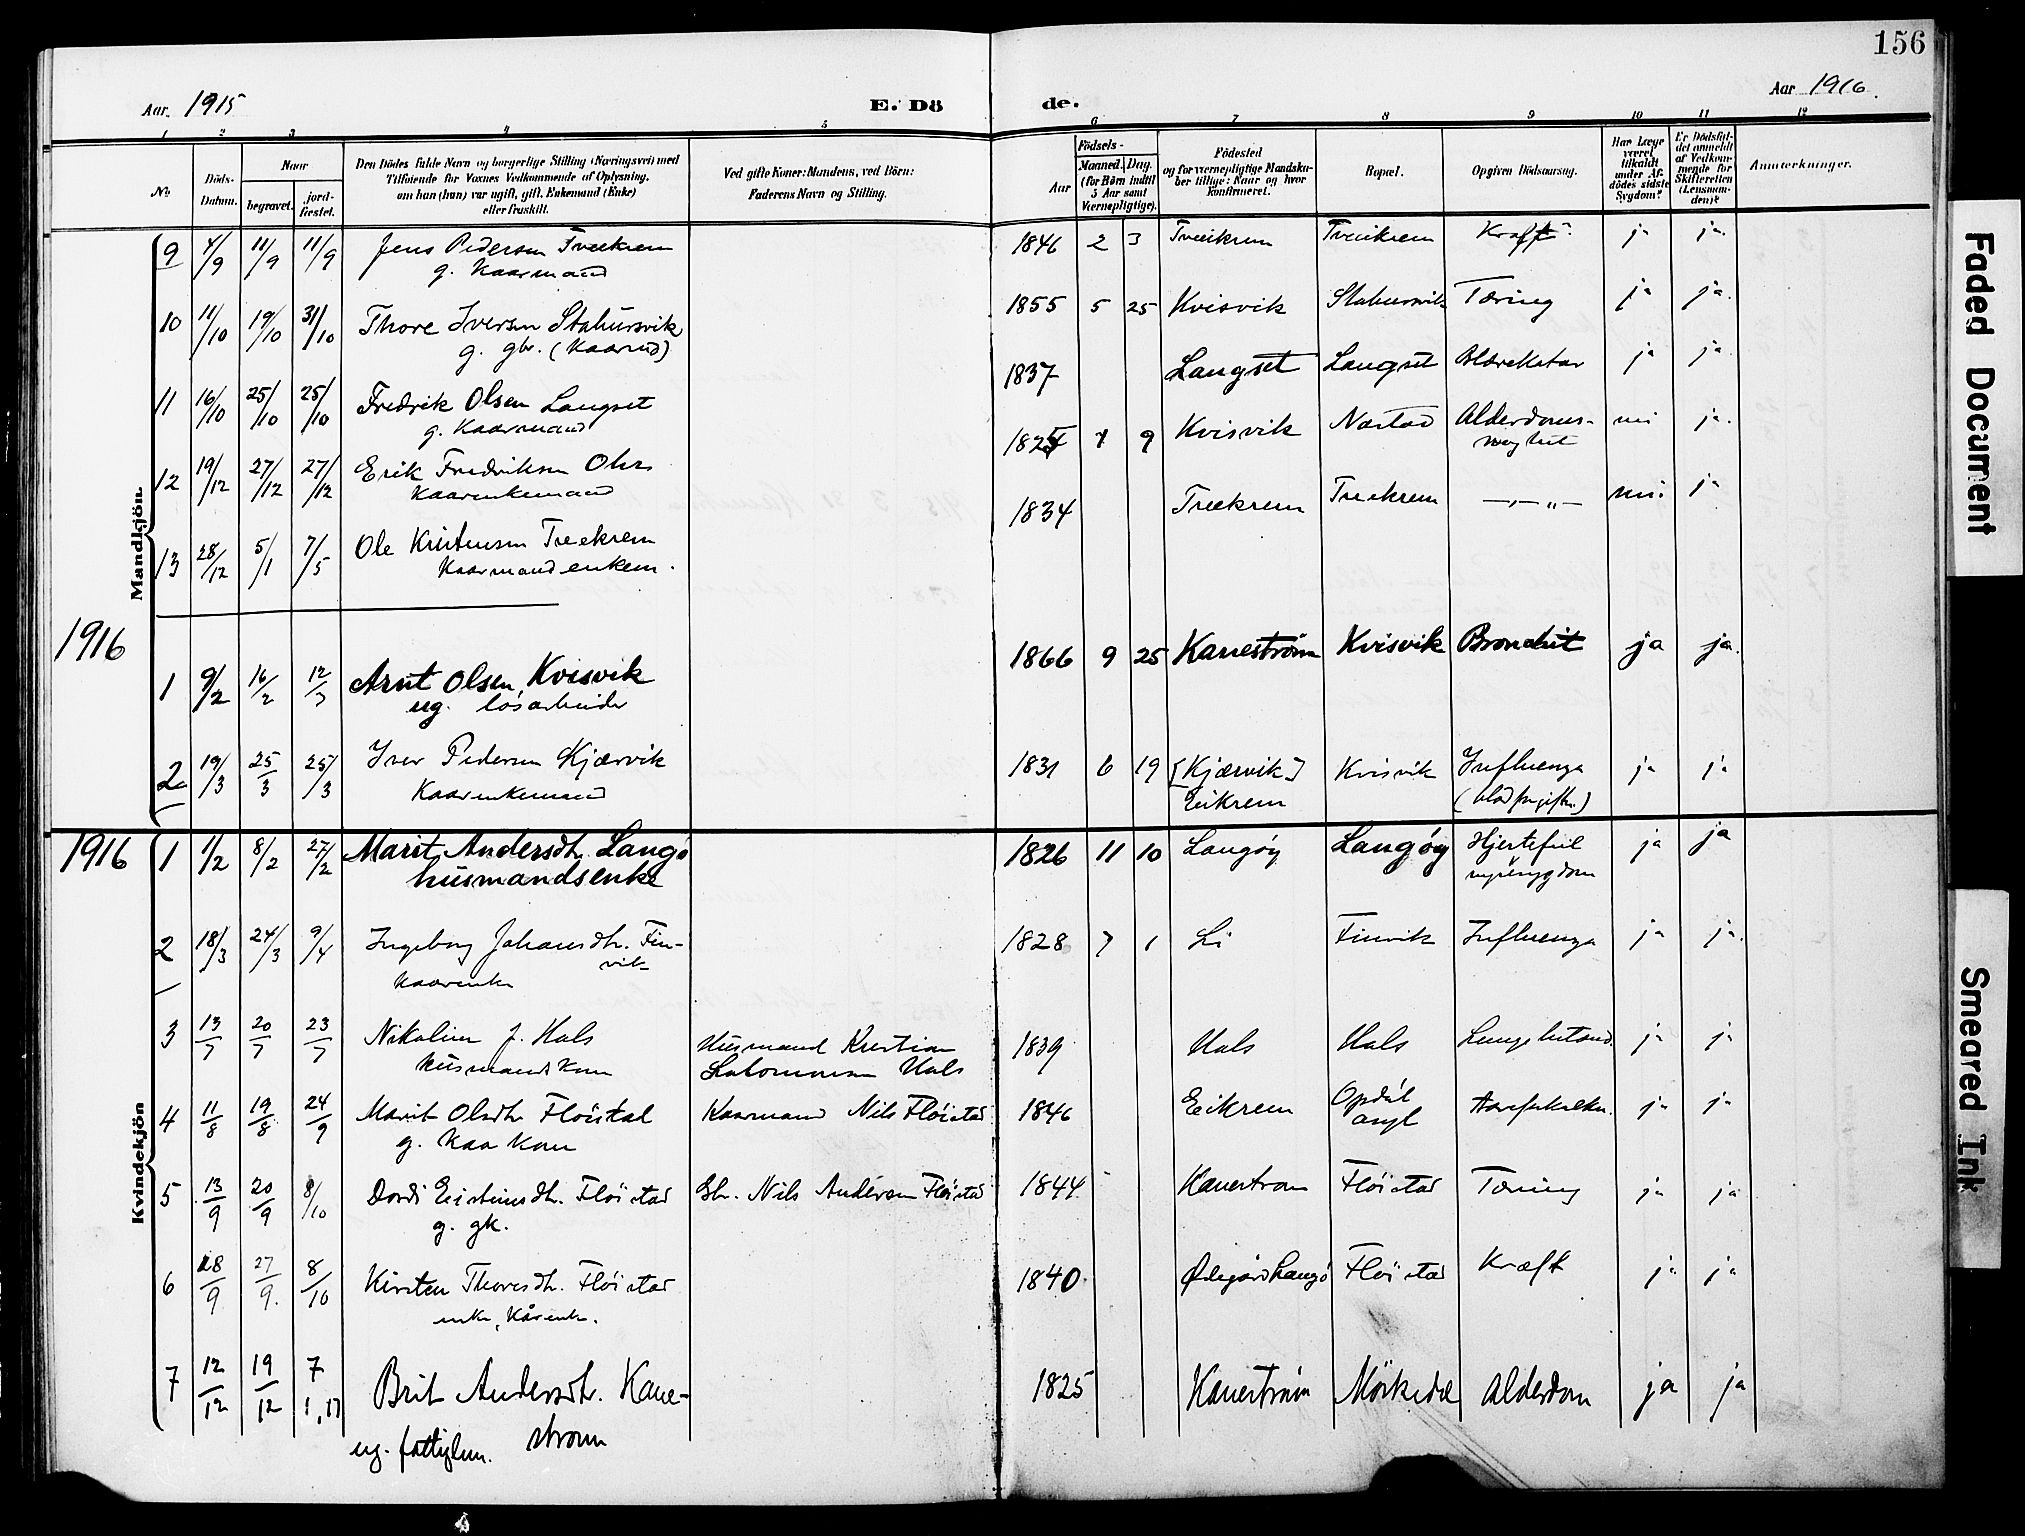 156
Aar 1915 E. Dö de. Aar 1916.
1 2 3 4 5 6 7 8 9 10 11 12
No. Döds-Datum. Naar begravet. jord-fæstet. Den Dödes fulde Navn og borgerlige Stilling (Næringsvei) med Tilföiende for Voxnes Vedkommende af Oplysning, om han (hun) var ugift, gift, Enkemand (Enke) eller fraskilt. Ved gifte Koner: Mandens, ved Börn: Faderens Navn og Stilling. Aar Födsels- Maaned. Dag. (for Börn indtil 5 Aar samt Værnepligtige). Födested og for værnepligtige Mandska-ber tillige: Naar og hvor konfirmeret. Bopæl. Opgiven Dödsaarsag. Har Læge været tilkaldt under Af-dödes sidste Sygdom? Er Dödsfal-det anmeldt af Vedkom-mende for Skifteretten (Lensman-den)? Anmærkninger.
Mandkjön.
9 4/9 11/9 11/9 Jens Pedersen Tveekrem 1846 2 3 Tveeikrem Tveeikrem Kræft ja ja.
g. Kaarmand
10 11/10 19/10 31/10 Thore Iversen Stahursvik 1855 5 25 Kvisvik Stahursvik Tæring ja ja.
g. gbr. (Kaarmd)
11 16/10 25/10 25/10 Fredrik Olsen Langset 1837 Langset Langset Blærekatar ja ja.
g. Kaarmand
12 19/12 27/12 27/12 Erik Fredriksen 9 Kvisvik Nastad Alderdoms- nei ja.
Kaarenkemand
13 28/12 5/1 7/5 Ole Kristensen Treekrem 1834 Treekrem Treekrem —„— nei ja
Kaarmand enkem.
1916
1 9/2 16/2 12/3 Arnt Olsen, Kvisvik 1866 9 25 Kanestrøm Kvisvik Bronchit ja ja.
ug. løsarbeider
2 19/3 25/3 25/3 Iver Pedersen Kjærvik 1831 6 19 [Kjærvik] Kvisvik Influenza ja ja
Kaarenkemand Eikrem (blodforgiftn.)
1916
Kvindekjön
1 1/2 8/2 27/2 Marit Andersdtr. Langø 1826 11 10 Langøy Langøy Hjertefeil ja ja
husmandsenke nyresygdom
2 18/3 24/3 9/4 Ingeborg Johansdtr. Fin- 1828 7 1 Li Finvik Influenza ja ja.
vik
Kaarenke
3 13/7 20/7 23/7 Nikoline J. Hals Husmand Kristian 1839 Hals Hals ja ja
husmands kone Salomonsen Hals
4 11/8 19/8 24/9 Marit Olsdtr Fløistad Kaarmand Nils Fløistad 1846 Eikrem Opdøl Aareforkalkn. ja ja
g. Kaa Kone asyl
5 13/9 20/9 8/10 Dordi Eisteinsdtr. Fløistad Gbr. Nils Andersen Fløistad 1844 Kanestrøm Fløistad Tæring ja ja
g. gk.
6 18/9 27/9. 8/10 Kirsten Thoresdtr. Fløistad 1840. Ødegård Langø Fløistad Kræft ja ja
enke, Kårenke.
7 12/12 19/12 7/1, 17 Brit Andersdtr. Kane- 1825 Kanestrøm Mørkedal Alderdom ja ja
ug. fattiglem. strøm
Faded Document
Smeared Ink